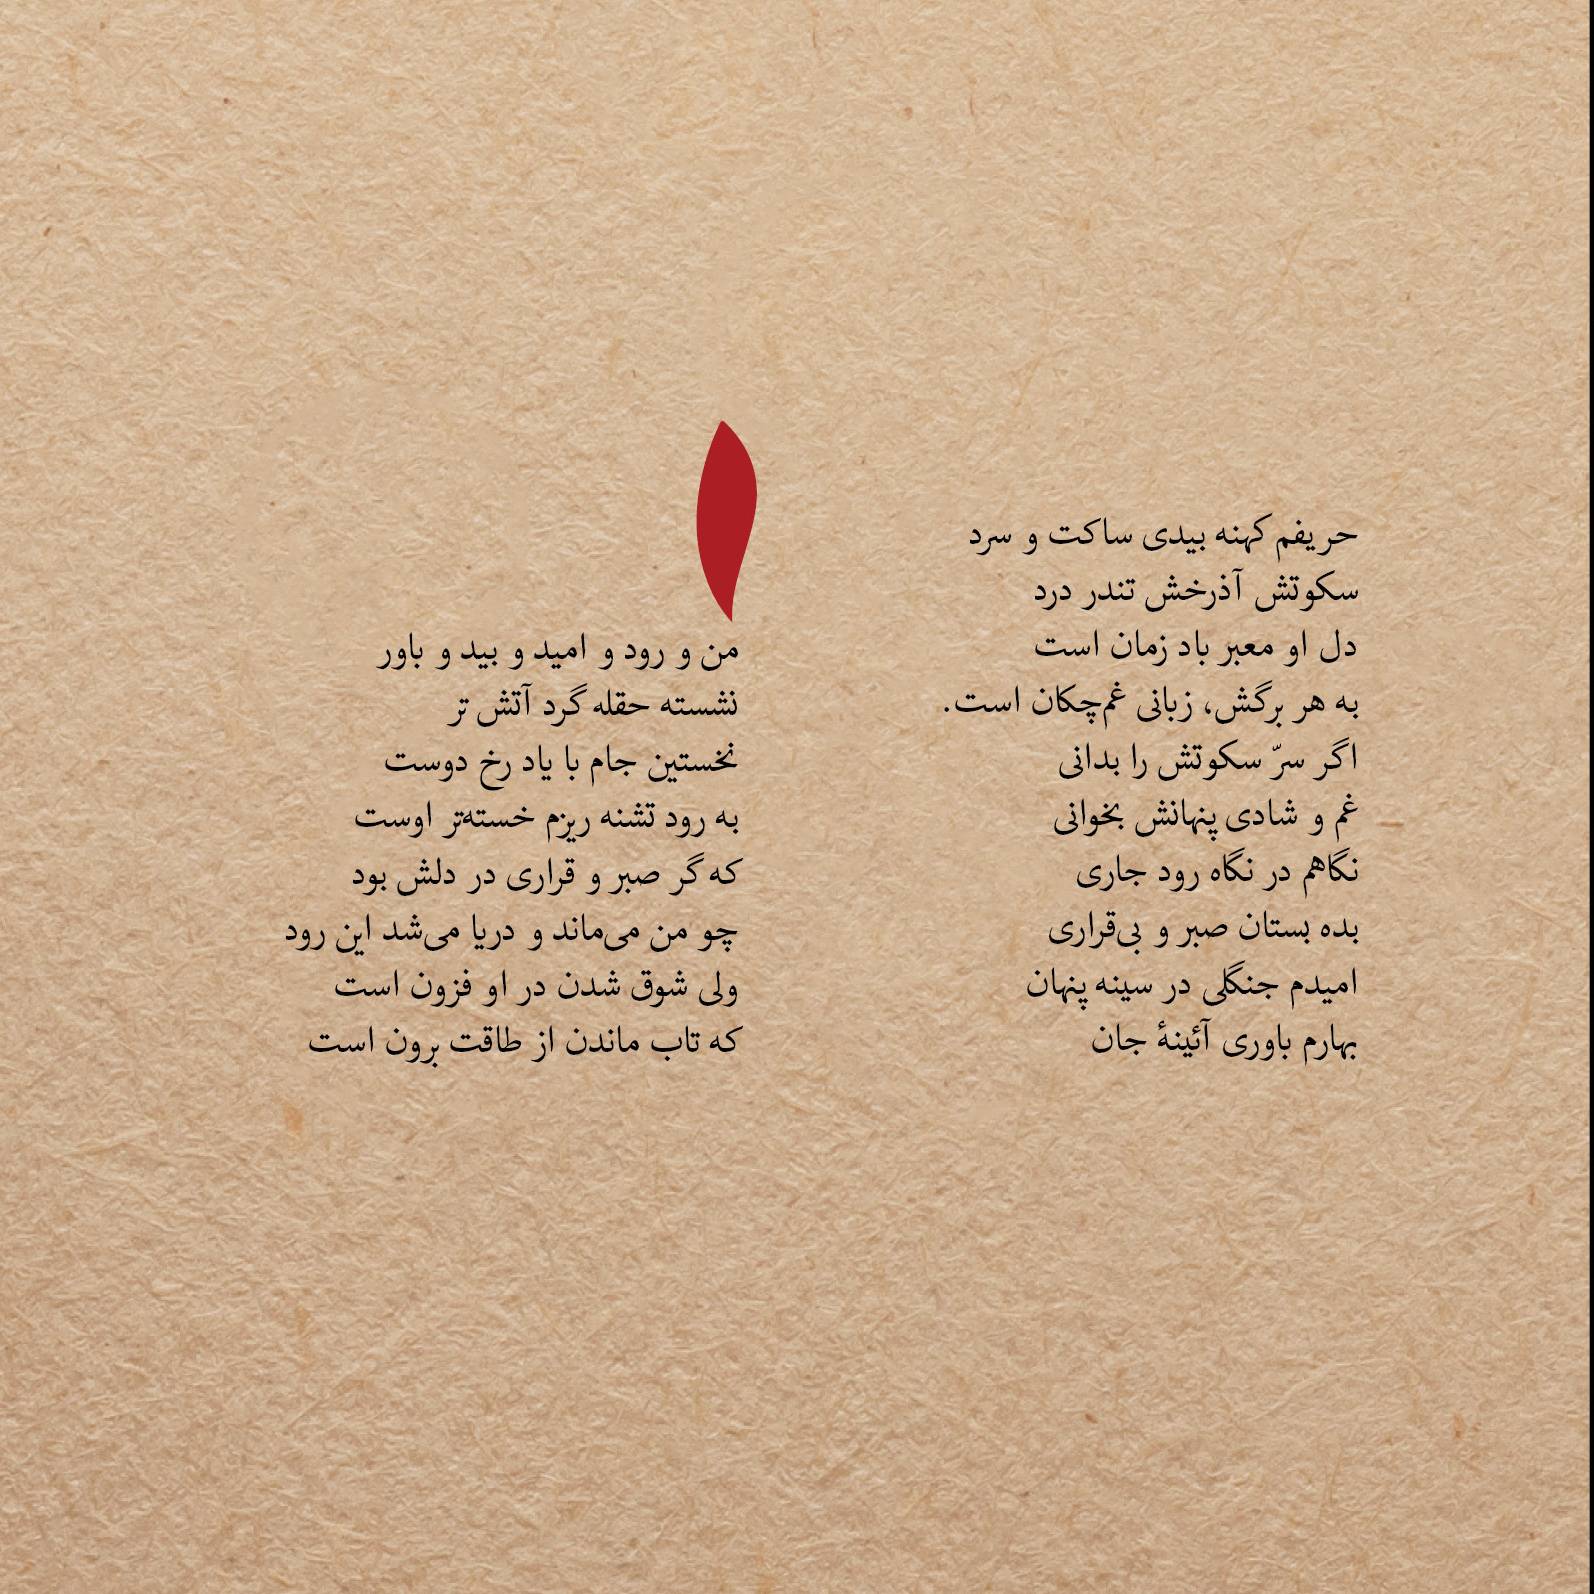 حریفم کهنه بیدی ساکت و سرد
سکوتش آذرخش تندر درد
دل او معبر باد زمان است
به هر برگش، زبانی غم‌چکان است.
اگر سرّ سکوتش را بدانی
غم و شادی پنهانش بخوانی
نگاهم در نگاه رود جاری
بده بستان صبر و بی‌قراری
امیدم جنگلی در سینه پنهان
بهارم باوری آئینهٔ جان
من و رود و امید و بید و باور
نشسته حقله گرد آتش تر
نخستین جام با یاد رخ دوست
به رود تشنه ریزم خسته‌تر اوست
که گر صبر و قراری در دلش بود
چو من می‌ماند و دریا می‌شد این رود
ولی شوق شدن در او فزون است
که تاب ماندن از طاقت برون است